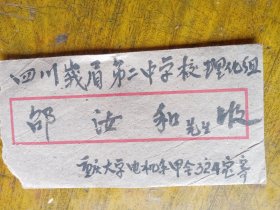 四川峨眉第二中学校理化组
邵汝和先生收
重庆大学电机系甲舍324室寄